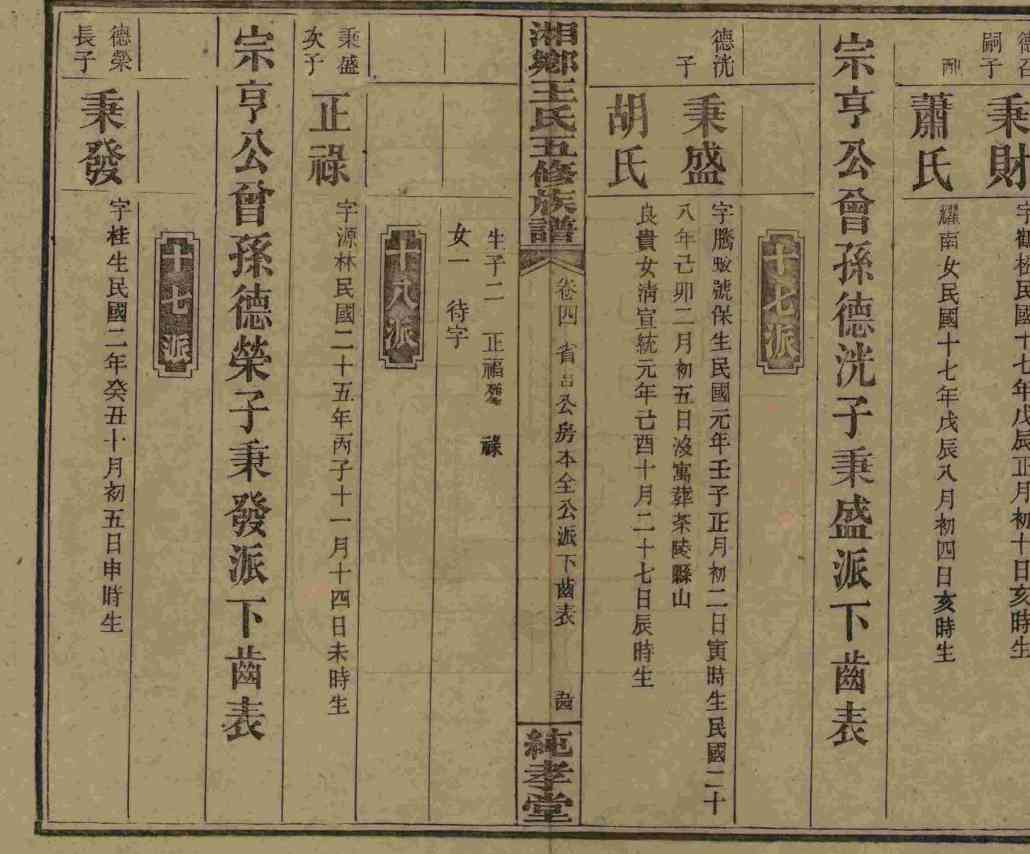 嗣子
秉財
民國十七年戊辰正月初十日亥時生
配
蕭氏
耀南女民國十七年戊辰八月初四日亥時生
宗亨公曾孫德洸子秉盛派下齒表
十七派
德洸
子
秉盛
字騰蛟號保生民國元年壬子正月初二日寅時生民國二十
八年己卯二月初五日沒寓葬茶陵縣山
胡氏
良貴女清宣統元年己酉十月二十七日辰時生
湘鄉王氏五修族譜
卷四
省吾公房本全公派下齒表
純孝堂
生子二
正福
祿
女一
待字
十八派
秉盛
次子
正祿
字源林民國二十五年丙子十一月十四日未時生
宗亨公曾孫德榮子秉發派下齒表
十七派
德榮
長子
秉發
字桂生民國二年癸丑十月初五日申時生